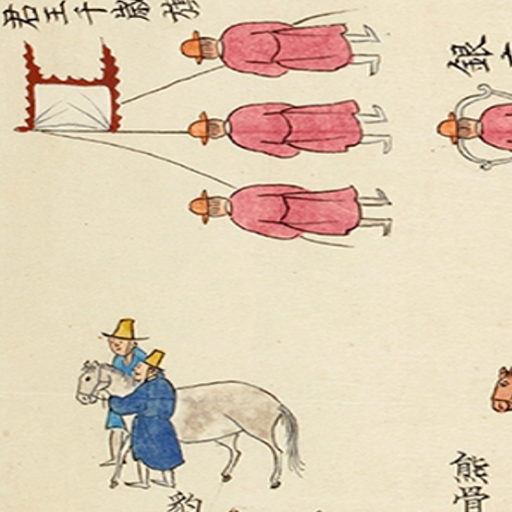 君王千歲旗
銀
熊骨
豹